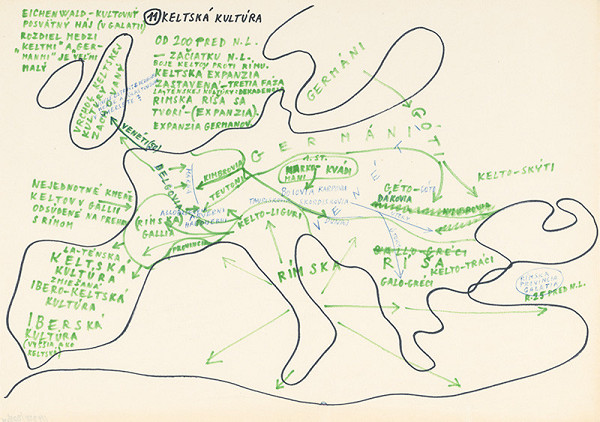 EICHENWALD - KULTOVNÝ
POSVÄTNÝ HÁJ (V GALATII)
ROZDIEL MEDZI
KELTMI "A GER-
MANMI" JE VEĽMI
MALÝ
11 KELTSKÁ KULTÚRA
OD 200 PRED N.L.
— ZAČIATKU N.L.
BOJE KELTOV PROTI RÍMU.
KELTSKÁ EXPANZIA
ZASTAVENÁ - TRETIA FÁZA
LATÉNSKEJ KULTÚRY: DEKADENCIA
RÍMSKA RÍŠA SA
TVORÍ - (EXPANZIA).
EXPANZIA GERMANOV.
VRCHOL KELTSKEJ
KULTÚRY
VENÉTI
GERMÁNI
GÓTI
GERMÁNI
BELGOVIA
KIMBROVIA
TEUTONI
1. ST.
MARKO-
MANI
KVÁDI
KELTO-SKÝTI
GÉTO-
DÁKOVIA
VENETI
NEJEDNOTNÉ KMENE
KELTOV V GALLII
ODSÚDENÉ NA PREHRU
S RÍMOM
(RÍMSKA)
GALLIA
PROVINCIA
KELTO-LIGURI
BÓJOVIA
TAURISKOVIA
SKORDISKOVIA
LATÉNSKA
KELTSKÁ
KULTÚRA
ZMIEŠANÁ
IBERO-KELTSKÁ
KULTÚRA
IBERSKÁ
KULTÚRA
(VYŠŠIA AKO
KELTSKÁ)
RÍMSKA
RÍŠA
GALLO-GRÉCI
KELTO-TRÁCI
GALO-GRÉCI
RÍMSKA
PROVINCIA
GALATIA
R. 25 PRED N.L.